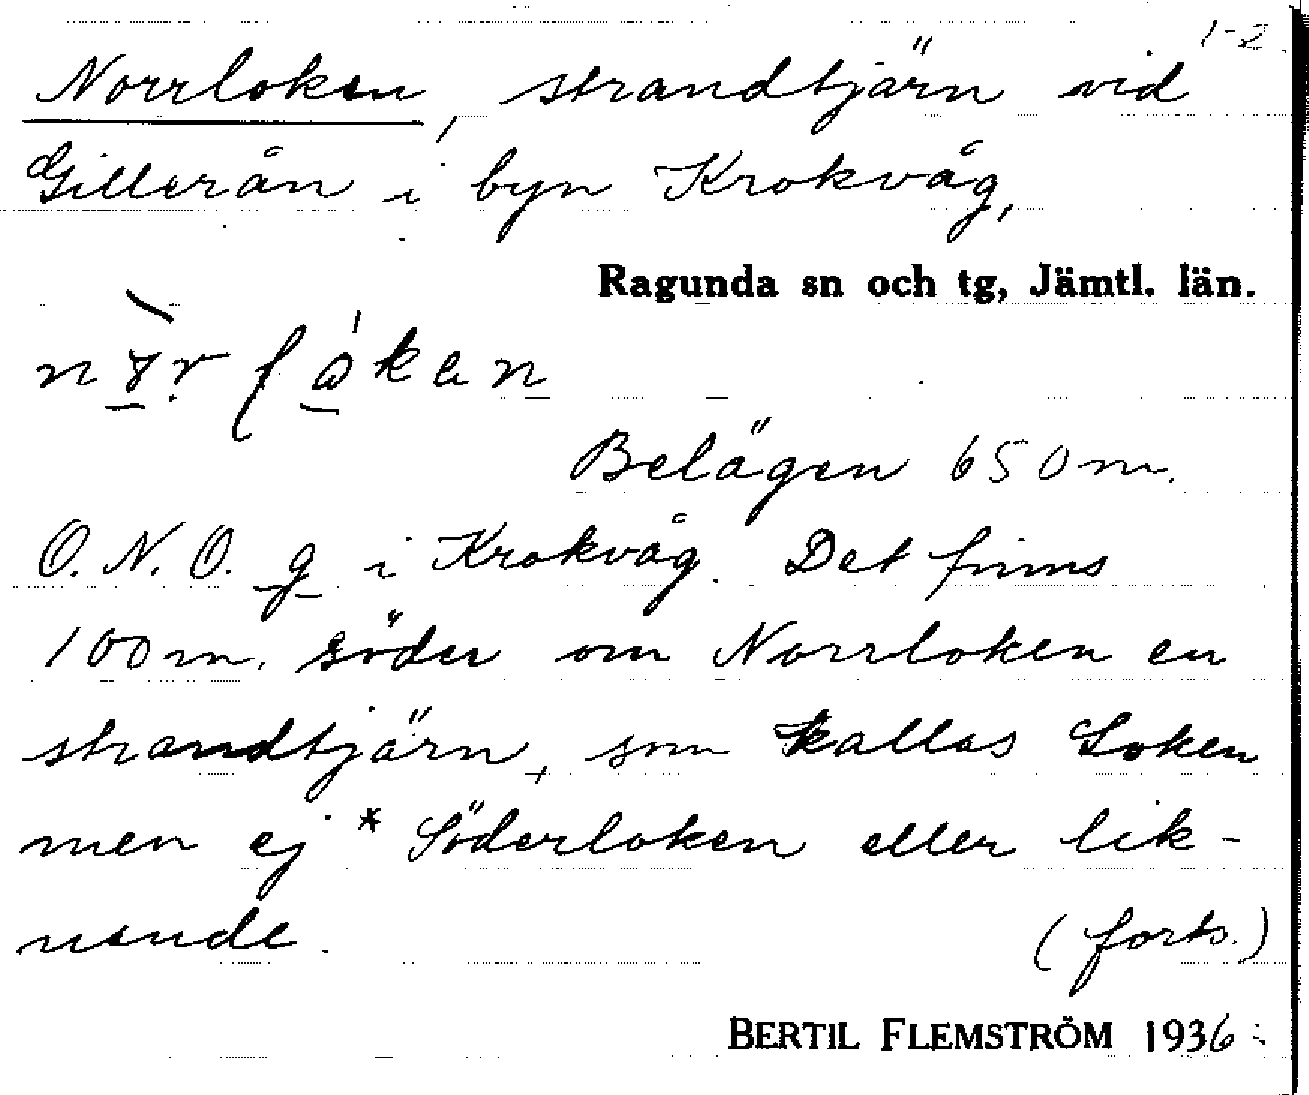 1-2.
Norrloken, strandtjärn vid
Gillerån i byn Krokvåg,
Ragunda sn och tg, Jämtl. län.
Belägen 650 m.
O.N.O. g i Krokvåg. Det finns
100 m. söder om Norrloken en
strandtjärn, som kallas Loken
men ej *Söderloken eller lik-
nande. (forts.)
BERTIL FLEMSTRÖM 1936